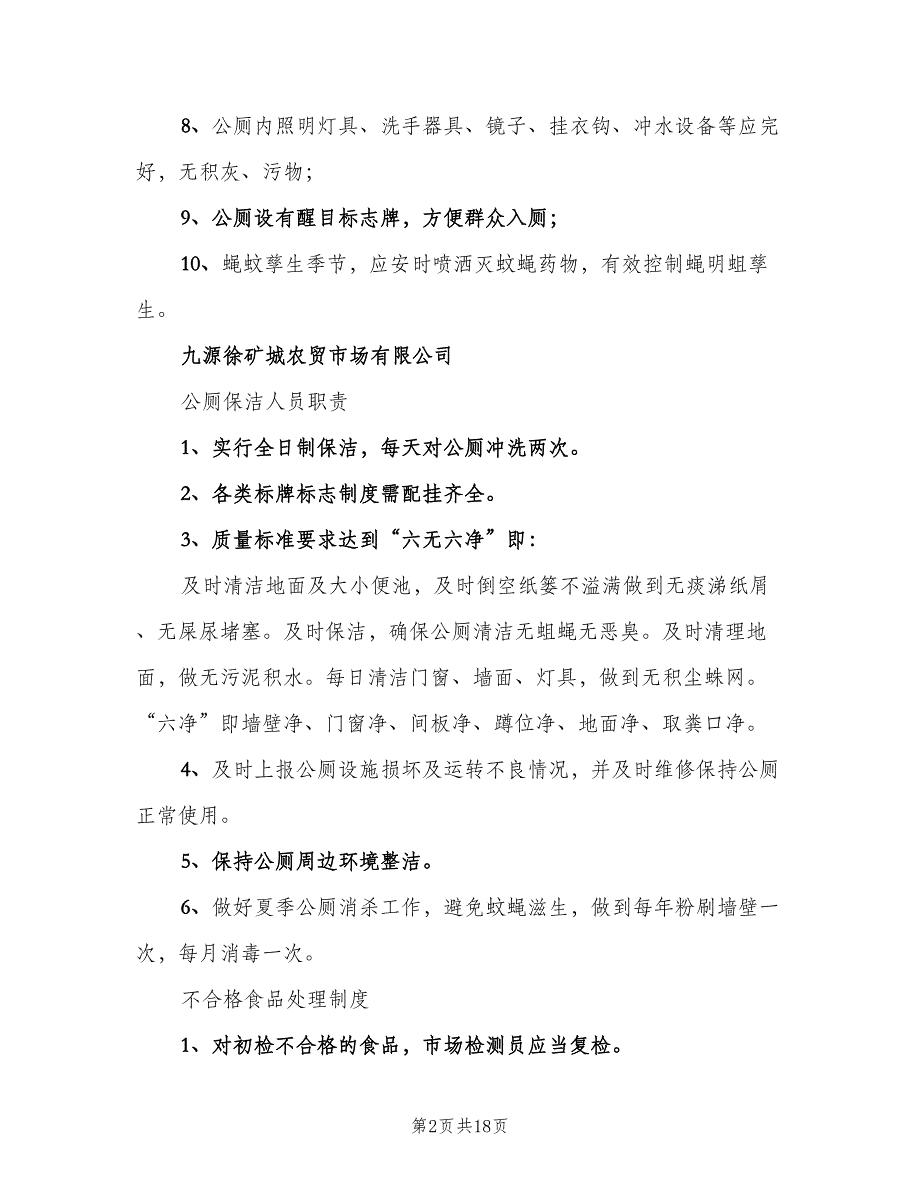 8、公厕内照明灯具、洗手器具、镜子、挂衣钩、冲水设备等应完
好，无积灰、污物；
9、公厕设有醒目标志牌，方便群众入厕；
10、蝇蚊孳生季节，应安时喷洒灭蚊蝇药物，有效控制蝇明蛆孳
生。
九源徐矿城农贸市场有限公司
公厕保洁人员职责
1、实行全日制保洁，每天对公厕冲洗两次。
2、各类标牌标志制度需配挂齐全。
3、质量标准要求达到“六无六净”即：
及时清洁地面及大小便池，及时倒空纸篓不溢满做到无痰涕纸屑
、无屎尿堵塞。及时保洁，确保公厕清洁无蛆蝇无恶臭。及时清理地
面，做无污泥积水。每日清洁门窗、墙面、灯具，做到无积尘蛛网。
“六净”即墙壁净、门窗净、间板净、蹲位净、地面净、取粪口净。
4、及时上报公厕设施损坏及运转不良情况，并及时维修保持公厕
正常使用。
5、保持公厕周边环境整洁。
6、做好夏季公厕消杀工作，避免蚊蝇滋生，做到每年粉刷墙壁一
次，每月消毒一次。
不合格食品处理制度
1、对初检不合格的食品，市场检测员应当复检。
第2页共18页